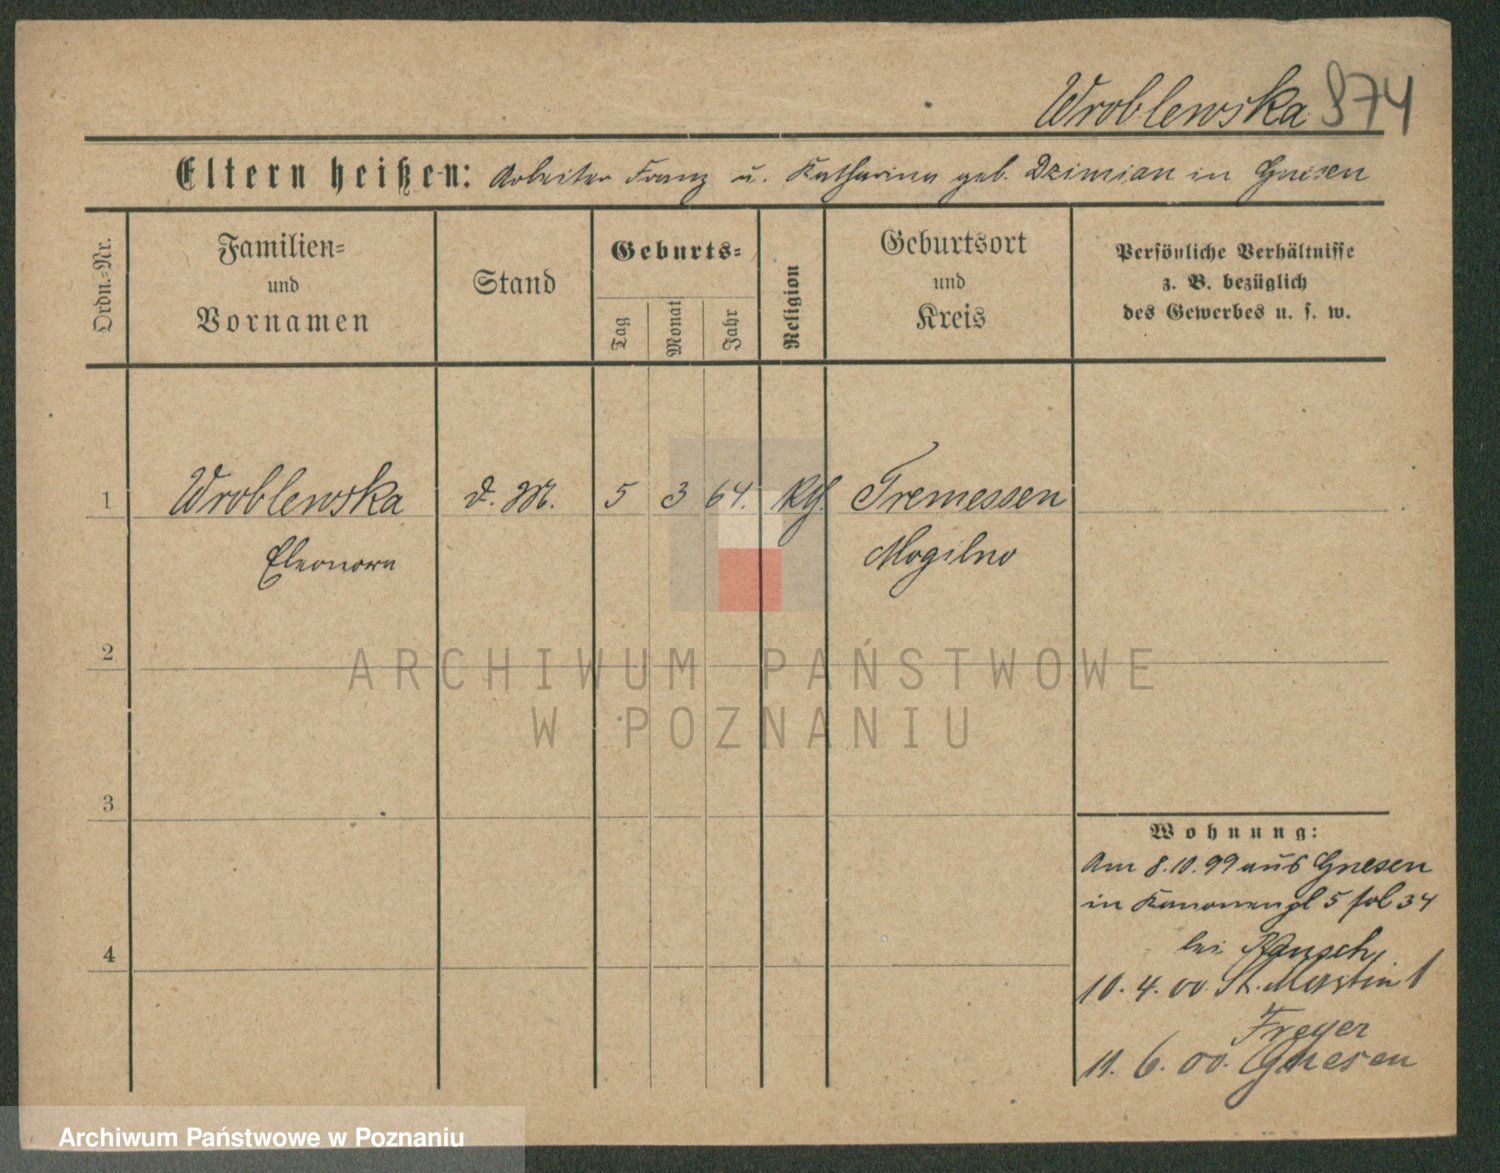 Wroblewska 874
Eltern heißen: Arbeiter Franz u. Katharina geb. Dzimian in Gnesen
Ordn.-Nr.
Familien-
und
Vornamen
Stand
Geburts-
Tag
Monat
Jahr
Religion
Geburtsort
und
Kreis
Persönliche Verhältnisse
z. B. bezüglich
des Gewerbes u. s. w.
1 Wroblewska d. M. 5 3 64. kth. Tremessen
Eleonora Mogilno
2
ARCHIWUM PAŃSTWOWE
W POZNANIU
3
Wohnung:
Am 8.10.99 aus Gnesen
in Kanonenpl 5 fol 34
4
bei Rausch,
10. 4. 00. St. Martin 1
Freyer
11. 6. 00. Gnesen
Archiwum Państwowe w Poznaniu